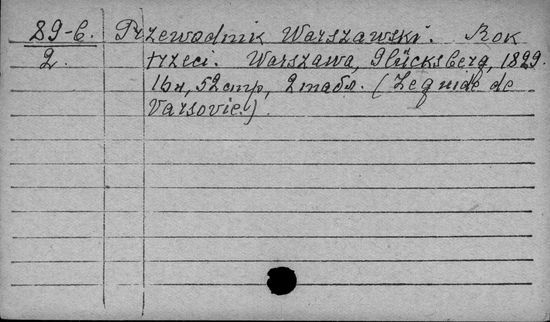 89-6. Przewodnik Warszawski. Rok
2. trzeci. Warszawa, Glücksberg, 1829.
16u, 52cmp, 2mads. (Le guide de
Varsovie.)